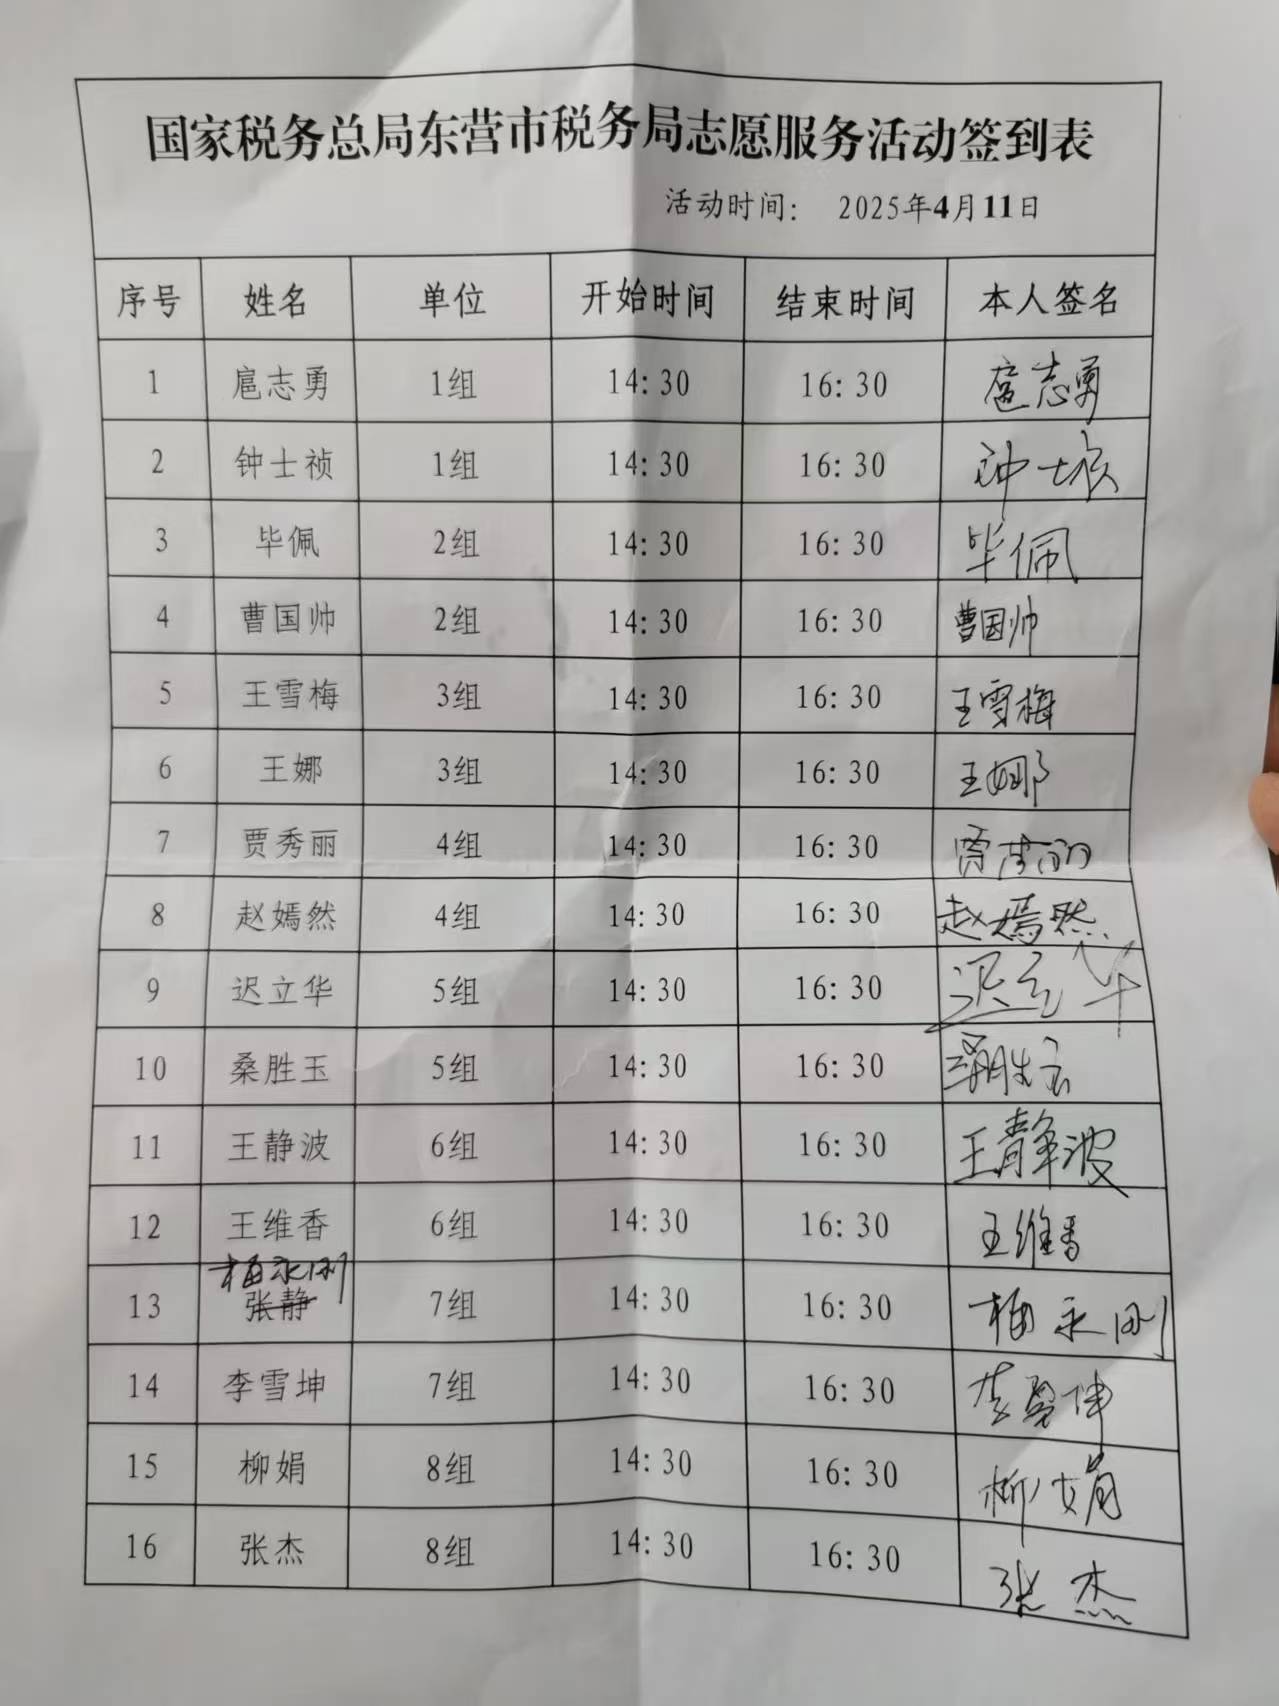 国家税务总局东营市税务局志愿服务活动签到表
活动时间： 2025年4月11日
序号 姓名 单位 开始时间 结束时间 本人签名
1 扈志勇 1组 14:30 16:30 扈志勇
2 钟士祯 1组 14:30 16:30 钟士祯
3 毕佩 2组 14:30 16:30 毕佩
4 曹国帅 2组 14:30 16:30 曹国帅
5 王雪梅 3组 14:30 16:30 王雪梅
6 王娜 3组 14:30 16:30 王娜
7 贾秀丽 4组 14:30 16:30 贾秀丽
8 赵嫣然 4组 14:30 16:30 赵嫣然
9 迟立华 5组 14:30 16:30 迟立华
10 桑胜玉 5组 14:30 16:30 桑胜玉
11 王静波 6组 14:30 16:30 王静波
12 王维香 6组 14:30 16:30 王维香
梅永刚
13 张静 7组 14:30 16:30 梅永刚
14 李雪坤 7组 14:30 16:30 李雪坤
15 柳娟 8组 14:30 16:30 柳娟
16 张杰 8组 14:30 16:30 张杰